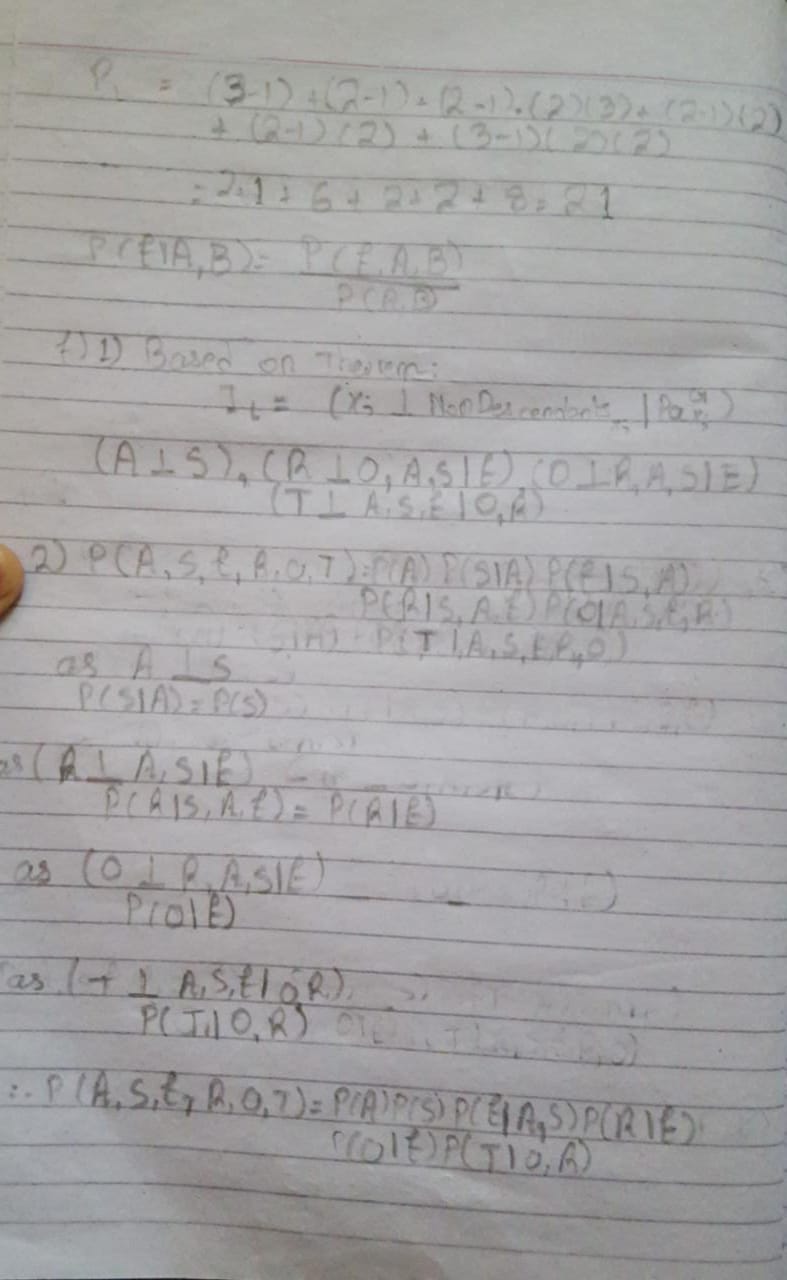 P = (3-1) + (2-1) + (2-1).(2)(3) + (2-1)(2)
+ (2-1)(2) + (3-1)(2)(2)
= 2+1+6+2+2+8=21
P(E|A,B)= P(E,A,B)
P(A,B)
1) Based on Theorem:
I = ( ⊥ NonDescendants | Pa )
(A⊥S), (R⊥O,A,S|E), (O⊥R,A,S|E)
(T⊥ A,S,E|O,R)
2) P(A,S,E,R,O,T)=P(A) P(S|A) P(E|S,A)
P(R|S,A,E) P(O|A,S,E,R)
P(T|A,S,E,R,O)
as A⊥S
P(S|A)=P(S)
as (R⊥A,S|E)
P(R|S,A,E)= P(R|E)
as (O⊥R,A,S|E)
P(O|E)
as (T⊥A,S,E|O,R)
P(T|O,R)
∴ P(A,S,E,R,O,T)=P(A)P(S)P(E|A,S)P(R|E)
P(O|E)P(T|O,R)